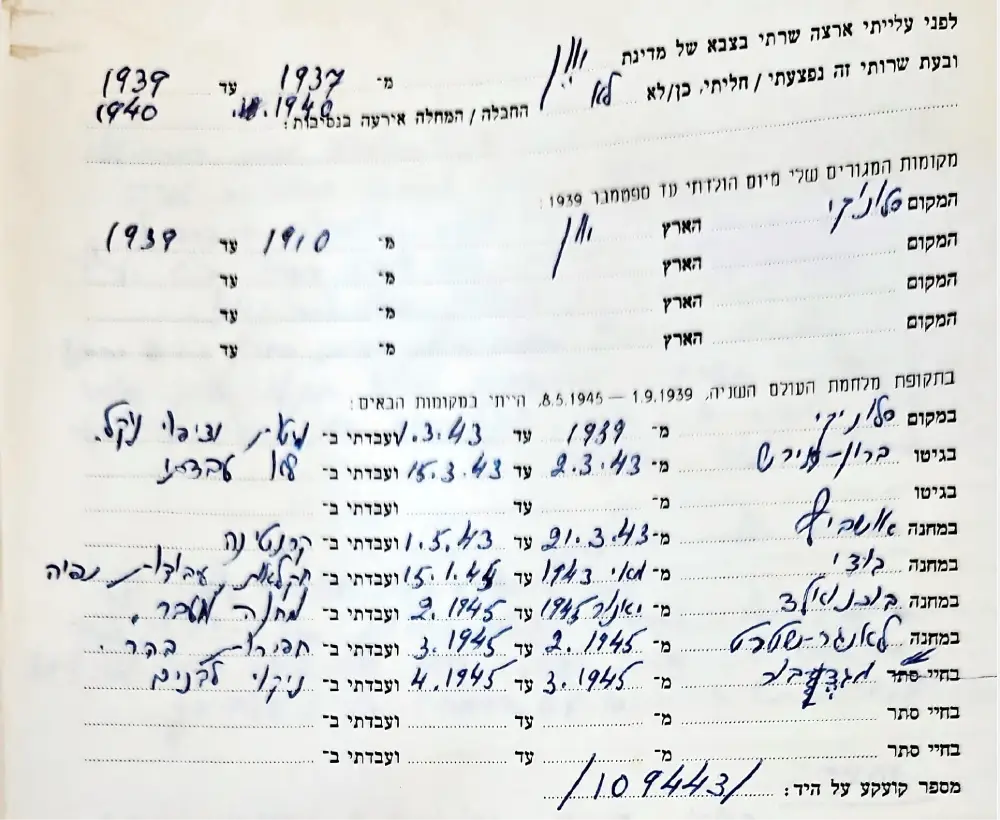 לפני עלייתי ארצה שרתי בצבא של מדינת יוון מ־ 1937 עד 1939
ובעת שרותי זה נפצעתי / חליתי, כן/לא לא 1940 1940
החבלה / המחלה אירעה בנסיבות:
מקומות המגורים שלי מיום הולדתי עד ספטמבר 1939:
המקום סלוניקי הארץ יוון מ־ 1910 עד 1939
המקום הארץ מ־ עד
המקום הארץ מ־ עד
המקום הארץ מ־ עד
בתקופת מלחמת העולם השניה, 1.9.1939 — 8.5.1945, הייתי במקומות הבאים:
במקום סלוניקי מ־ 1939 עד 1.3.43 ועבדתי ב־ וציפוי ניקל.
בגיטו ברון-הירש מ־ 2.3.43 עד 15.3.43 ועבדתי ב־ לא עבדתי
בגיטו מ־ עד ועבדתי ב־
במחנה אושביץ מ־ 21.3.43 עד 1.5.43 ועבדתי ב־ קרנטינה
במחנה בודי מ־ מאי 1943 עד 15.1.45 ועבדתי ב־ חקלאות, עבודות כפיה
במחנה בוכנואלד מ־ ינואר 1945 עד 2.1945 ועבדתי ב־ מחנה מעבר.
במחנה לאנגר-שטרט מ־ 2.1945 עד 3.1945 ועבדתי ב־ חפירות בהר.
בחיי סתר מגדבור מ־ 3.1945 עד 4.1945 ועבדתי ב־ ניקוי לבנים
בחיי סתר מ־ עד ועבדתי ב־
בחיי סתר מ־ עד ועבדתי ב־
מספר קועקע על היד: /109443/